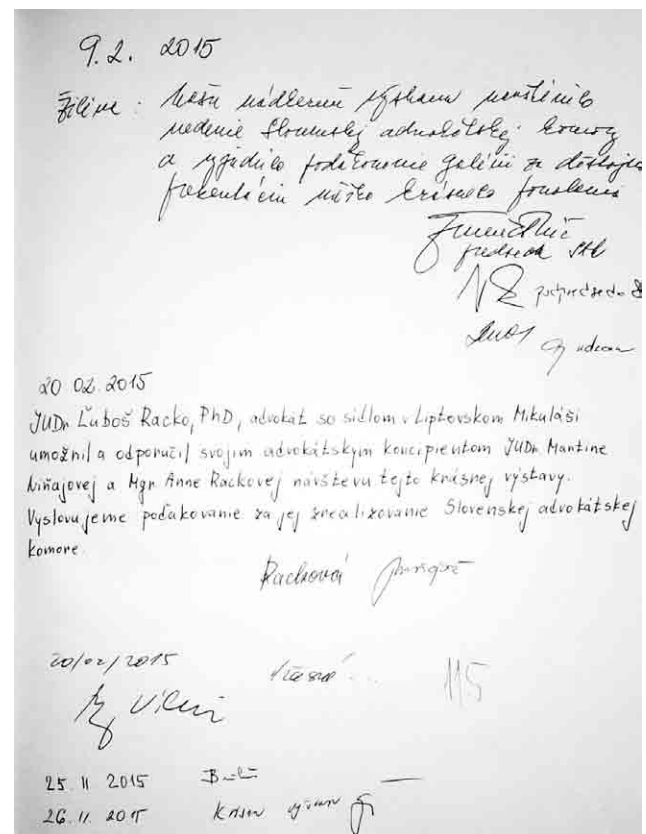 9.2. 2015
Žilina : Našu nádhernú výstavu navštívilo
vedenie Slovenskej advokátskej komory
a vyjadrilo poďakovanie galérii za dôstojnú
prezentáciu nášho krásneho povolania
predseda SAK
podpredseda
20 02. 2015
JUDr. Ľuboš Racko, PhD, advokát so sídlom v Liptovskom Mikuláši
umožnil a odporučil svojim advokátskym koncipientom JUDr. Martine
Niňajovej a Mgr. Anne Rackovej návštevu tejto krásnej výstavy.
Vyslovujeme poďakovanie za jej zrealizovanie Slovenskej advokátskej
komore.
Racková
20/02/2015
115
25. 11 2015
26. 11. 2015